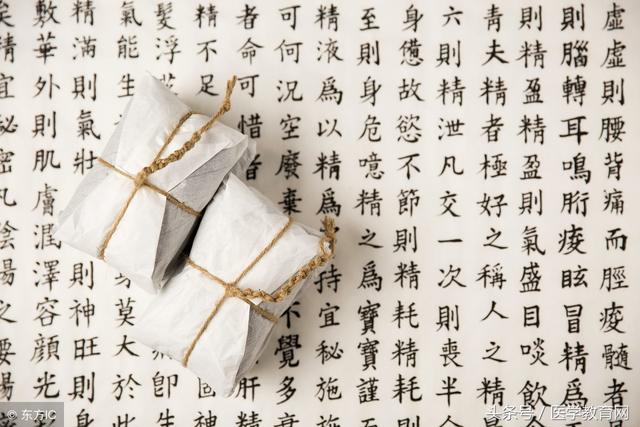 虛虛則腰背痛而脛痠髓者
則腦轉耳鳴胻痠眩冒精爲
則精盈精盈則氣盛目啖飲
青夫精者極好之稱人之精
六則精泄凡交一次則喪半
身億故慾不節則精耗精耗則
至則身危噫精之爲寶寶謹至
精液爲以精爲持宜秘施
可何況空廢棄不覺多衰
者命可惜肝精
精不足神
髮浮即生
氣能生身莫大於此
精滿則氣壯則神旺則身
敷華外則肌膚潤澤容顏光
精宜秘密凡陰陽之腰
© 东方IC
头条号 / 医学教育网